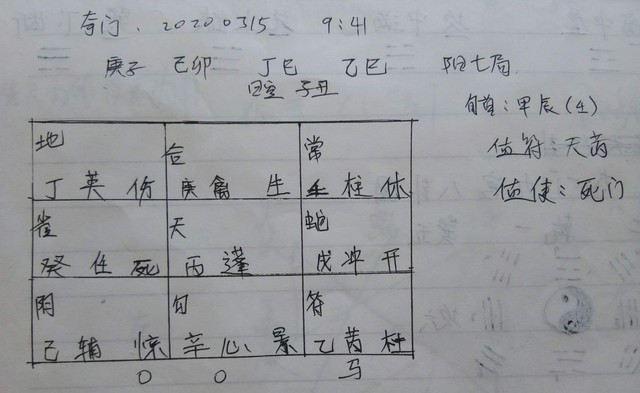 奇门. 20200315 9:41
庚子 己卯 丁巳 乙巳 阳七局
日空 子丑
旬首:甲辰(壬)
值符:天芮
值使:死门
地 合 常
丁英伤 庚禽生 壬柱休
雀 天 蛇
癸任死 丙蓬 戊冲开
阴 勾 符
己辅惊 辛心景 乙芮杜
O O 马